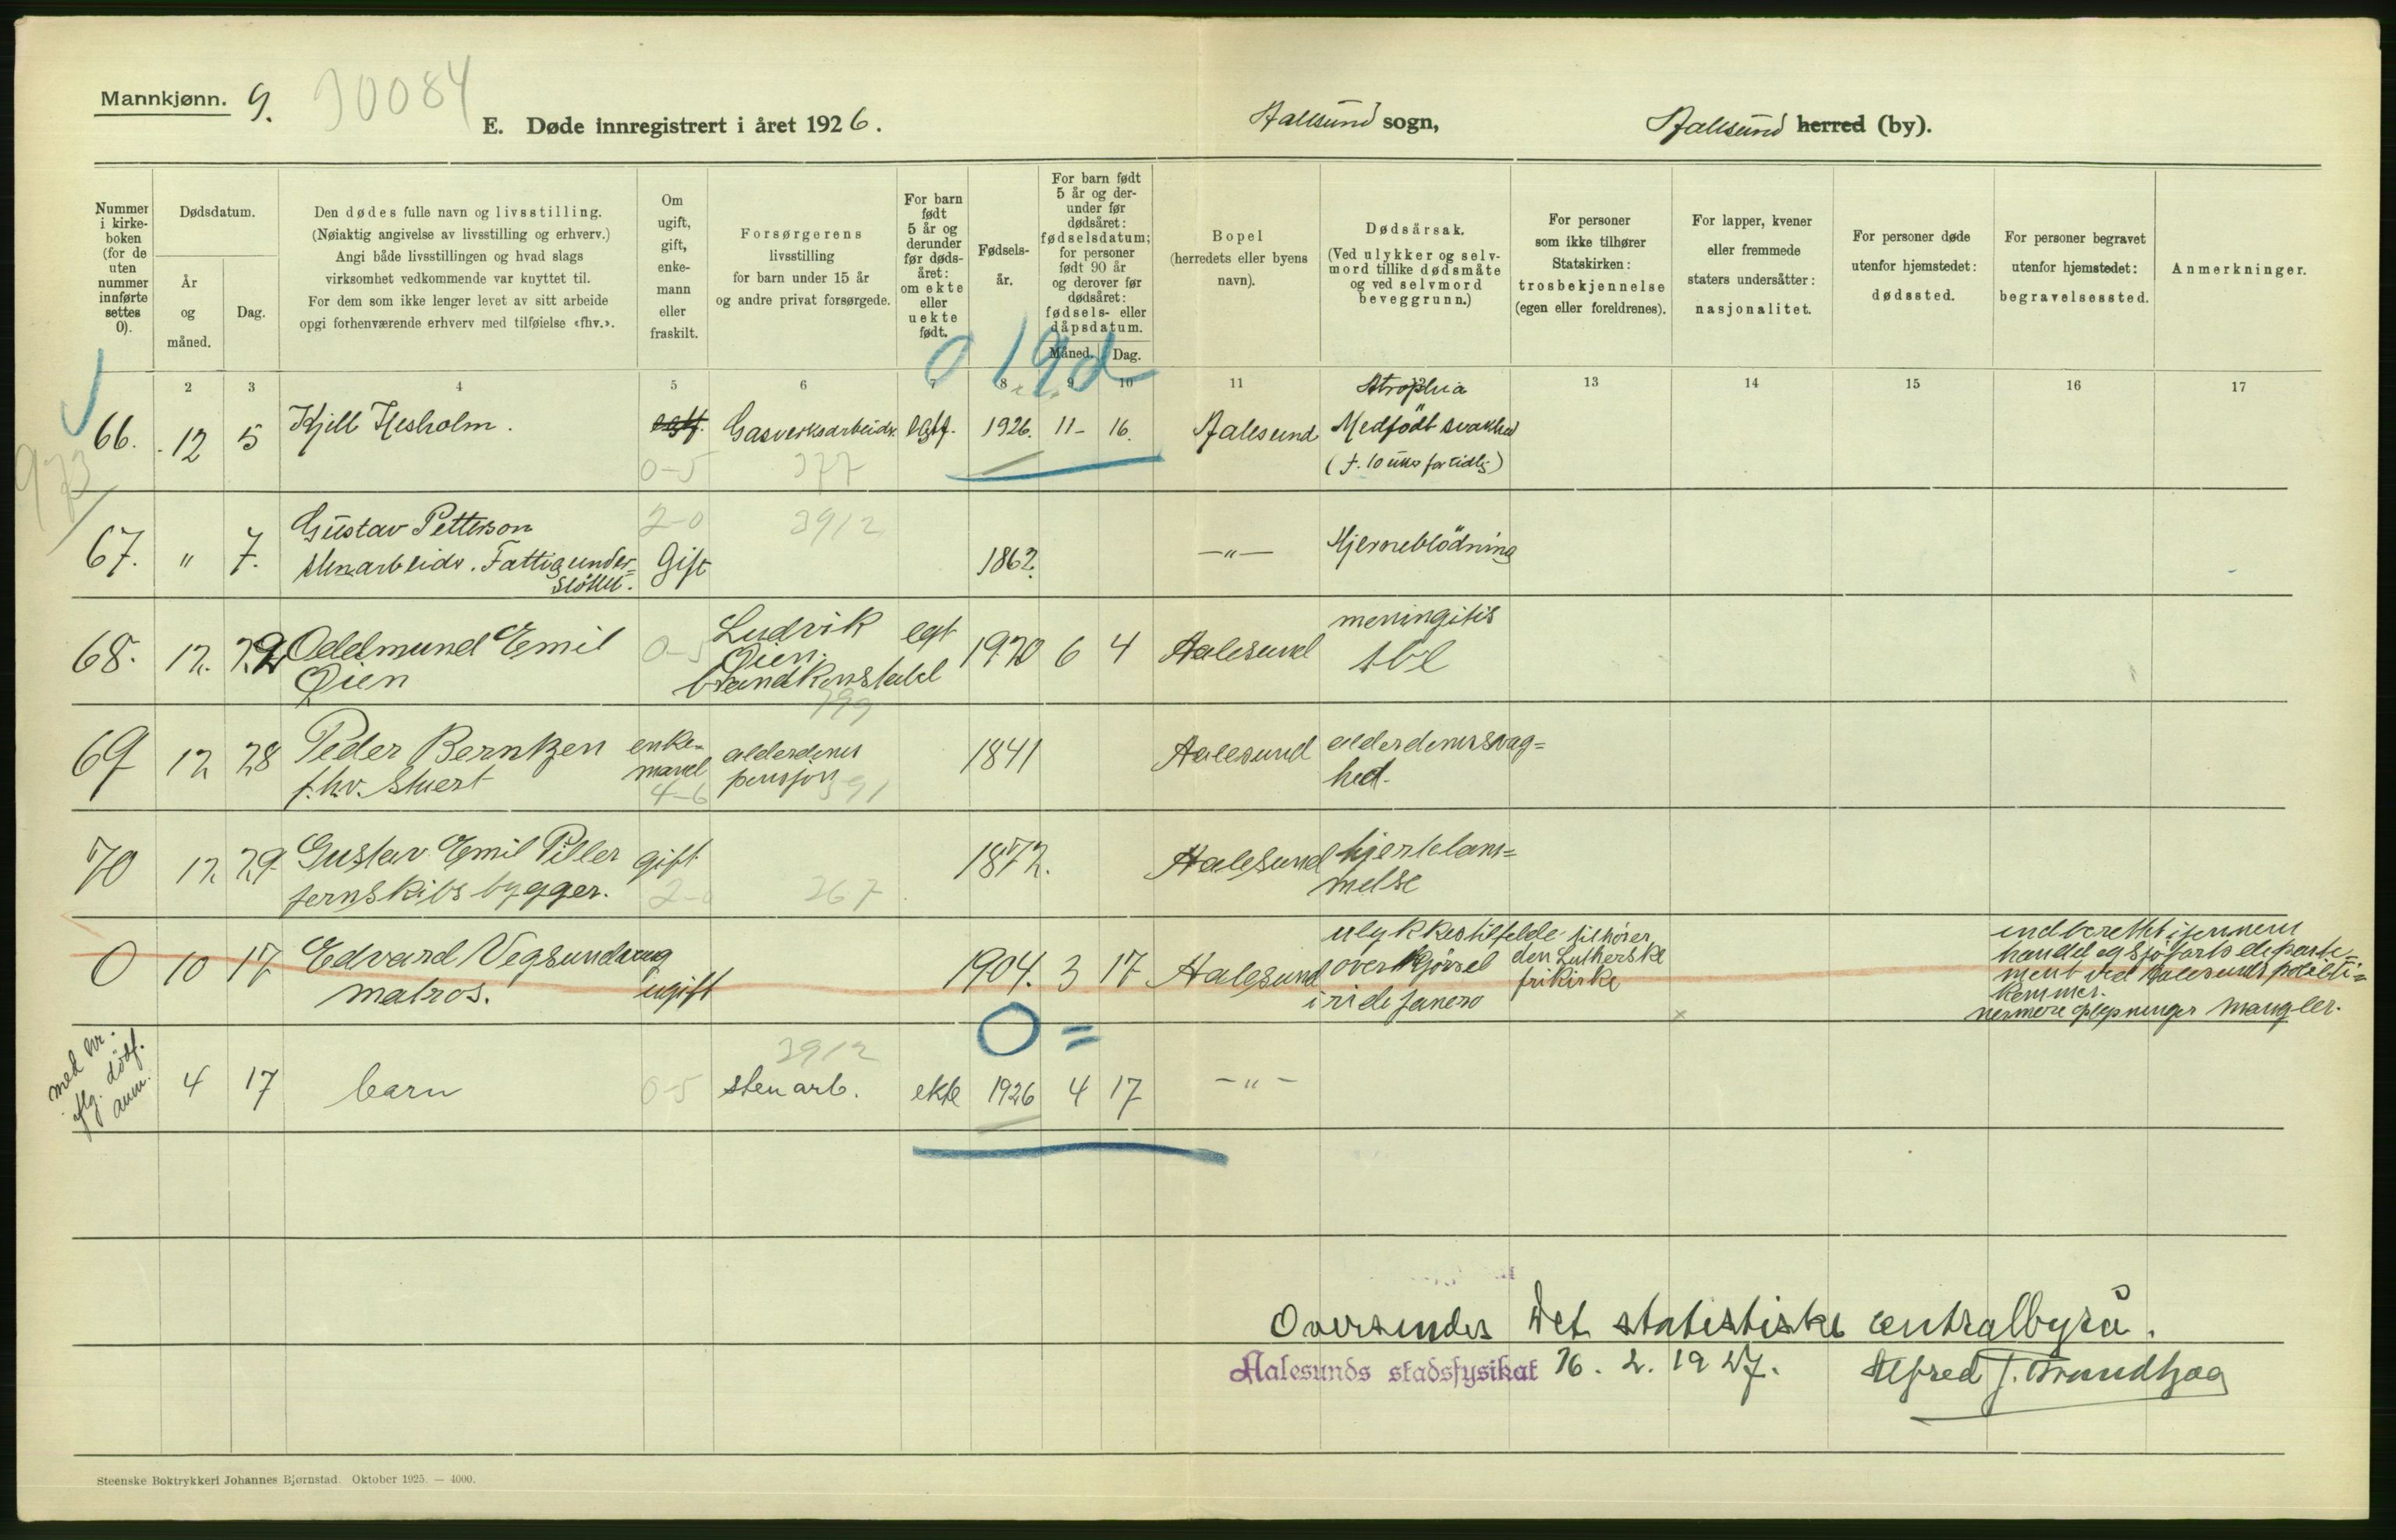 Mannkjønn. 9. 30084
E. Døde innregistrert i året 1926.
Aalesund sogn, Aalesund herred (by).
Nummer i kirkeboken (for de uten nummer innførte settes 0).
Dødsdatum.
År og måned.
Dag.
Den dødes fulle navn og livsstilling.
(Nøiaktig angivelse av livsstilling og erhverv.)
Angi både livsstillingen og hvad slags
virksomhet vedkommende var knyttet til.
For dem som ikke lenger levet av sitt arbeide
opgi forhenværende erhverv med tilføielse «fhv.».
Om ugift, gift, enkemann eller fraskilt.
Forsørgerens
livsstilling
for barn under 15 år
og andre privat forsørgede.
For barn født 5 år og derunder før dødsåret: om ekte eller uekte født.
Fødselsår.
For barn født 5 år og derunder før dødsåret: fødselsdatum; for personer født 90 år og derover før dødsåret: fødsels- eller dåpsdatum.
Måned. Dag.
Bopel
(herredets eller byens
navn).
Dødsårsak.
(Ved ulykker og selvmord tillike dødsmåte og ved selvmord beveggrunn.)
For personer
som ikke tilhører
Statskirken:
trosbekjennelse
(egen eller foreldrenes).
For lapper, kvener
eller fremmede
staters undersåtter:
nasjonalitet.
For personer døde
utenfor hjemstedet:
dødssted.
For personer begravet
utenfor hjemstedet:
begravelsessted.
Anmerkninger.
0 19d
2 3 4 5 6 7 8 9 10 11 13 14 15 16 17
66. 12 5 Kjell Hesholm. egtf. Gasverksarbeider egtf. 1926. 11 - 16. Aalesund Atrophia
Medfödt svakhed
(f. 10 uker for tidlig)
0-5 377
973
67. " 7. Gustav Petterson
Stenarbeider. Fattigunder=
støttet.
2-0 3912
Gift 1862. —"— Hjerneblödning
68. 12. 29 Oddmund Emil
Øien
0-5 Ludvik
Øien.
brandkonstabel
399
egt 1920 6 4 Aalesund meningitis
tbc
69 12 28 Peder Berntzen
f.h.v. Stuert
enke=
mand
4-6
alderdoms
pensjon 391
1841 Aalesund alderdomssvag=
hed.
70 12 29. Gustav Emil Piller
jernskibsbygger.
gift
2-0 267
1872. Aalesund hjertelam=
melse
0 10 17 Edvard Vegsundvaag
matros.
ugift 1904. 3 17 Aalesund ulykkestilfelde
overkjørsel
i rio de Janero
tilhører
den Lutherske
frikirke
x
indberettet igjennem
handel og Sjøfarts departe=
ment ved Aalesunds politi=
kammer.
nermere oplysninger mangler.
0 =
med nr.
flg. dödf.
anm.
4 17 barn 0-5 3912
sten arb. ekte 1926 4 17 — " —
Oversendes Det statistiske centralbyrå.
Aalesunds stadsfysikat 16. 2. 1927.
Steenske Boktrykkeri Johannes Bjørnstad. Oktober 1925. — 4000.